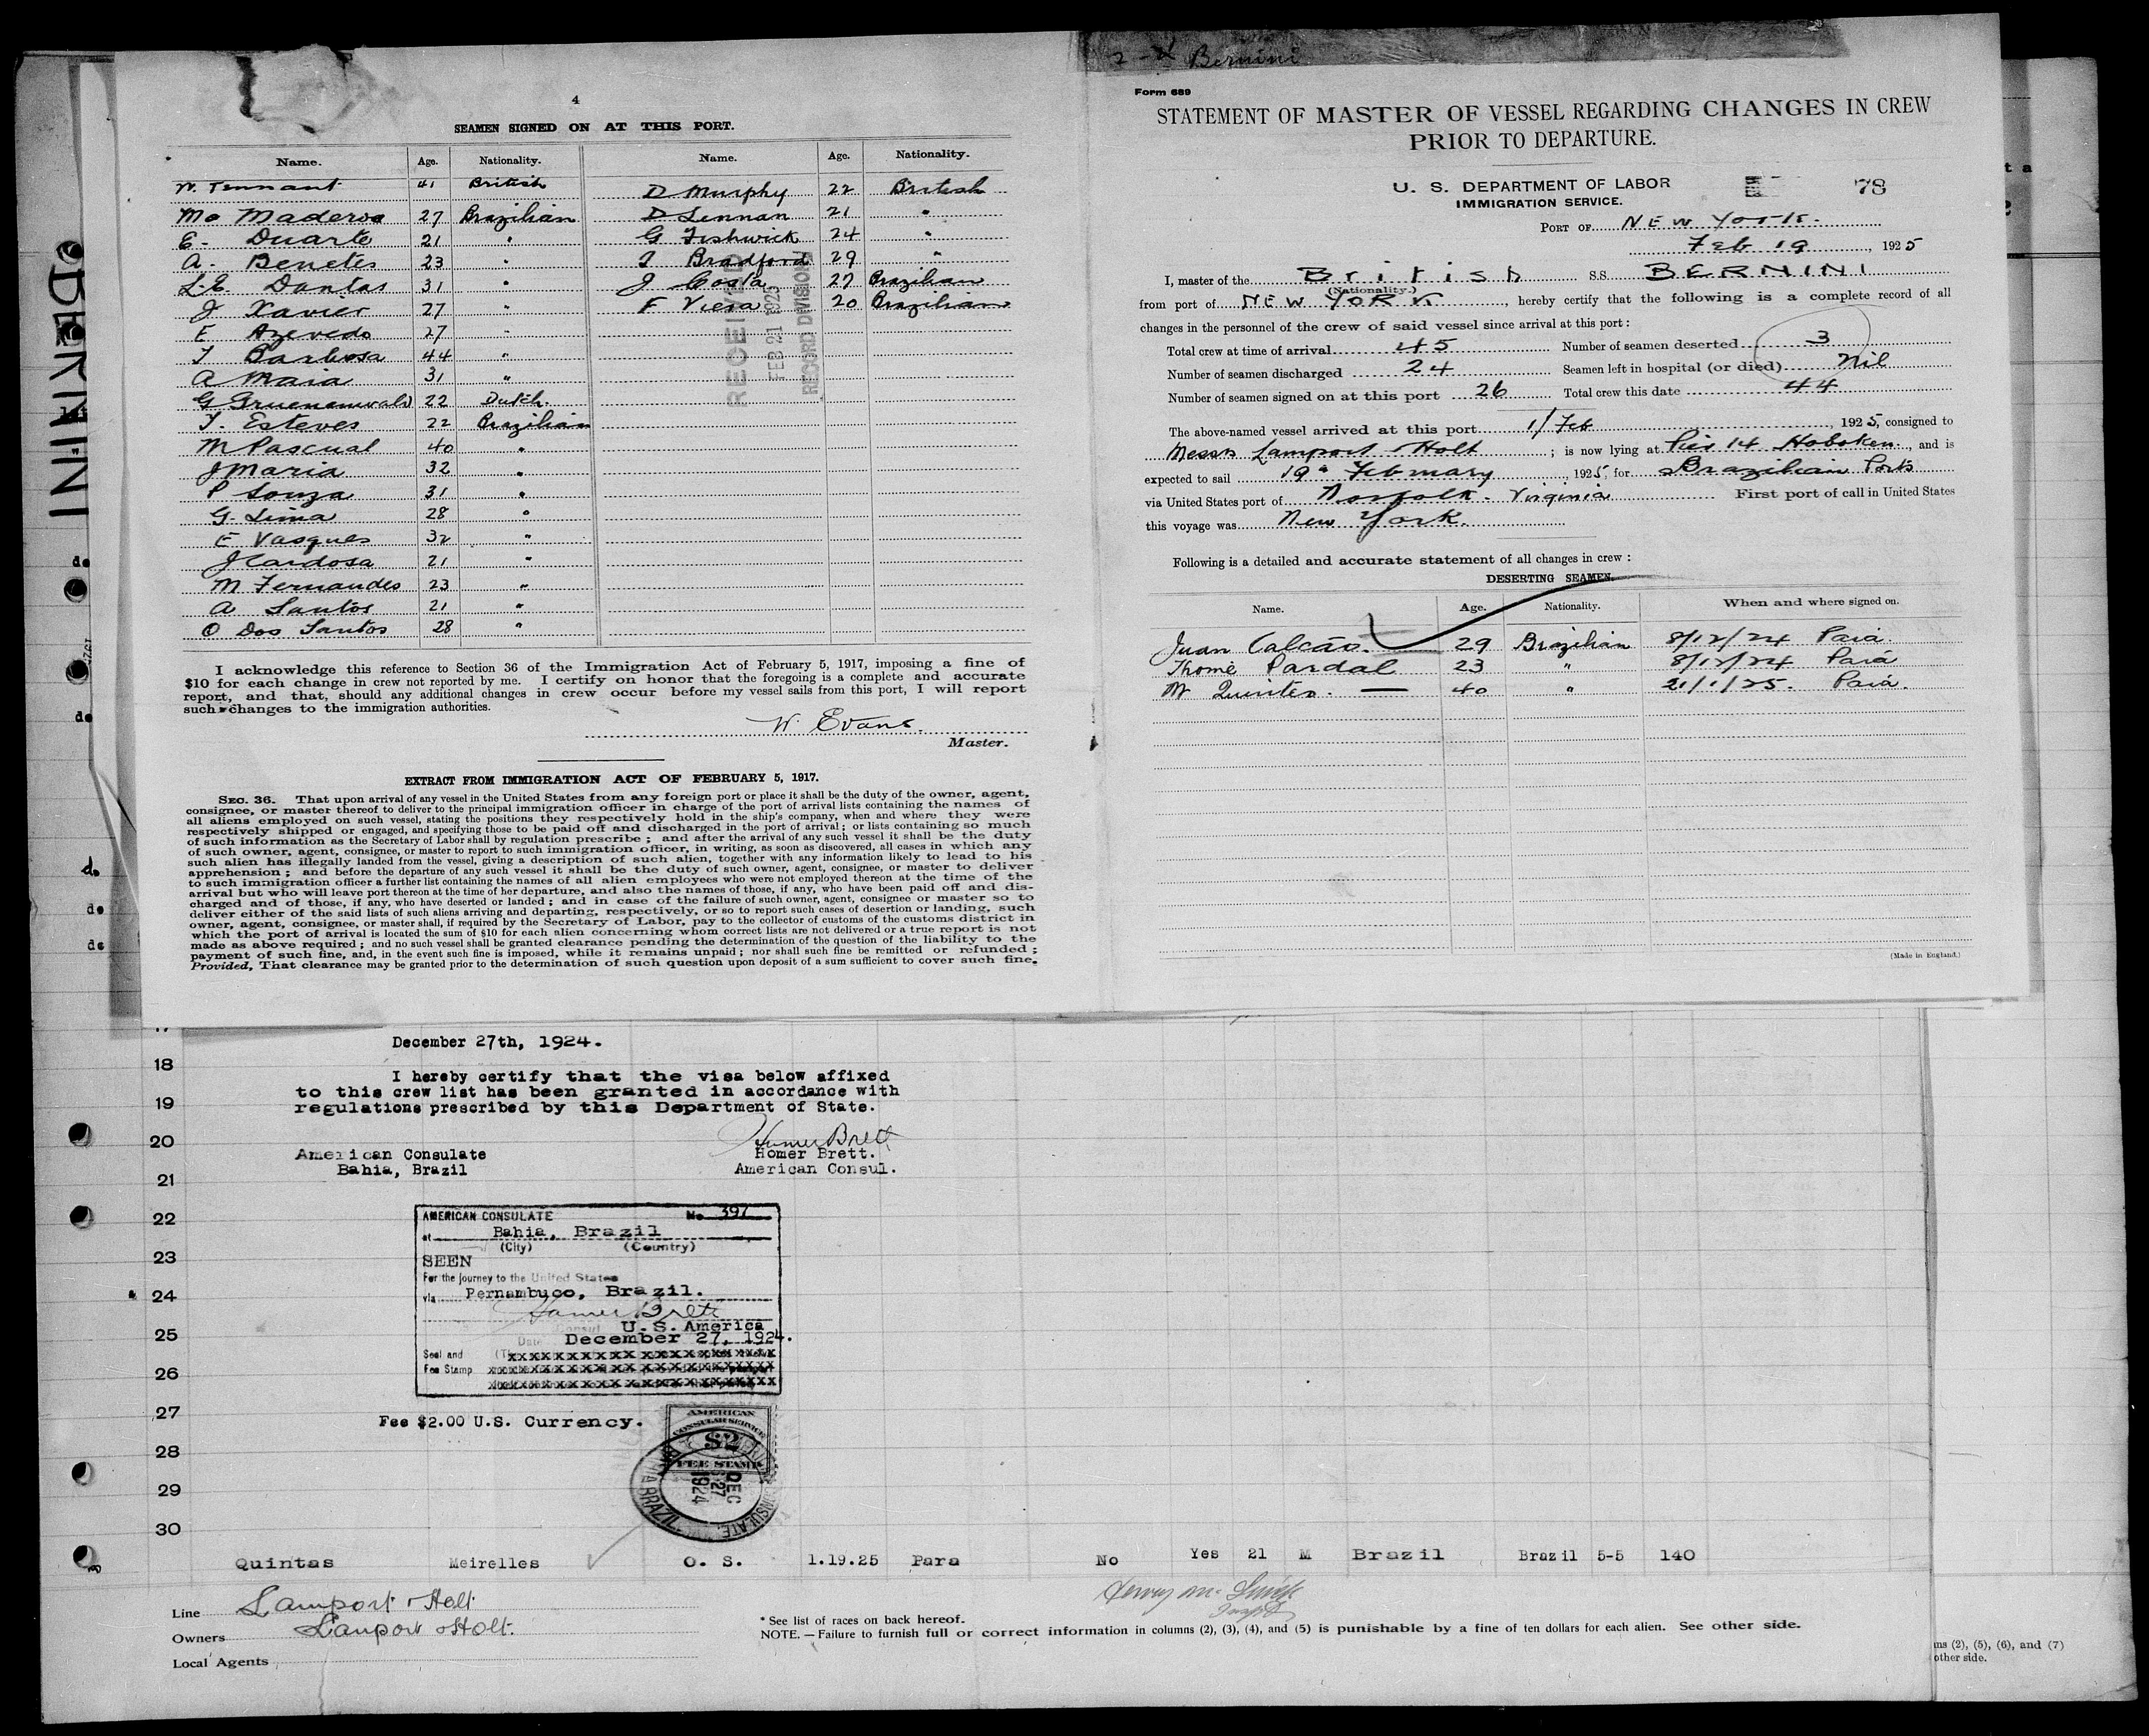 BERNINI
4
SEAMEN SIGNED ON AT THIS PORT.
Name. Age. Nationality. Name. Age. Nationality.
W. Tennant 41 British D Murphy 22 British
Mo Maderos 27 Brazilian D Lennan 21 "
E. Duarte 21 " G Fishwick 24 "
A. Benetes 23 " J Bradford 29 "
L.C. Dantas 31 " J Costa 27 Brazilian
J Xavier 27 " F Viera 20 Brazilian
E Azevedo 27 "
T Barbosa 44 "
A Maia 31 "
G Gruenenwald 22 Dutch.
T. Esteves 22 Brazilian
M Pascual 40 "
J Maria 32 "
P Souza 31 "
G. Lima 28 "
E Vasques 32 "
J Cardosa 21 "
M Fernandes 23 "
A Santos 21 "
O Dos Santos 28 "
RECEIVED
FEB 21 1925
RECORD DIVISION
I acknowledge this reference to Section 36 of the Immigration Act of February 5, 1917, imposing a fine of
$10 for each change in crew not reported by me. I certify on honor that the foregoing is a complete and accurate
report, and that, should any additional changes in crew occur before my vessel sails from this port, I will report
such changes to the immigration authorities.
W. Evans.
Master.
EXTRACT FROM IMMIGRATION ACT OF FEBRUARY 5, 1917.
SEC. 36. That upon arrival of any vessel in the United States from any foreign port or place it shall be the duty of the owner, agent,
consignee, or master thereof to deliver to the principal immigration officer in charge of the port of arrival lists containing the names of
all aliens employed on such vessel, stating the positions they respectively hold in the ship's company, when and where they were
respectively shipped or engaged, and specifying those to be paid off and discharged in the port of arrival; or lists containing so much
of such information as the Secretary of Labor shall by regulation prescribe; and after the arrival of any such vessel it shall be the duty
of such owner, agent, consignee, or master to report to such immigration officer, in writing, as soon as discovered, all cases in which any
such alien has illegally landed from the vessel, giving a description of such alien, together with any information likely to lead to his
apprehension; and before the departure of any such vessel it shall be the duty of such owner, agent, consignee, or master to deliver
to such immigration officer a further list containing the names of all alien employees who were not employed thereon at the time of the
arrival but who will leave port thereon at the time of her departure, and also the names of those, if any, who have been paid off and dis-
charged and of those, if any, who have deserted or landed; and in case of the failure of such owner, agent, consignee or master so to
deliver either of the said lists of such aliens arriving and departing, respectively, or so to report such cases of desertion or landing, such
owner, agent, consignee, or master shall, if required by the Secretary of Labor, pay to the collector of customs of the customs district in
which the port of arrival is located the sum of $10 for each alien concerning whom correct lists are not delivered or a true report is not
made as above required; and no such vessel shall be granted clearance pending the determination of the question of the liability to the
payment of such fine, and, in the event such fine is imposed, while it remains unpaid; nor shall such fine be remitted or refunded;
Provided, That clearance may be granted prior to the determination of such question upon deposit of a sum sufficient to cover such fine.
Bernini
Form 689
STATEMENT OF MASTER OF VESSEL REGARDING CHANGES IN CREW
PRIOR TO DEPARTURE.
U. S. DEPARTMENT OF LABOR
IMMIGRATION SERVICE.
78
PORT OF NEW YORK.
Feb 19, 1925
I, master of the British S.S. BERNINI
(Nationality.)
from port of NEW YORK, hereby certify that the following is a complete record of all
changes in the personnel of the crew of said vessel since arrival at this port:
Total crew at time of arrival 45 Number of seamen deserted 3
Number of seamen discharged 24 Seamen left in hospital (or died) Nil
Number of seamen signed on at this port 26 Total crew this date 44
The above-named vessel arrived at this port 1/Feb, 1925, consigned to
Messrs Lamport & Holt; is now lying at Pier 14 Hoboken, and is
expected to sail 19th February, 1925, for Brazilian Ports
via United States port of Norfolk. Virginia First port of call in United States
this voyage was New York.
Following is a detailed and accurate statement of all changes in crew:
DESERTING SEAMEN.
Name. Age. Nationality. When and where signed on.
Juan Calcão. 29 Brazilian 8/12/24 Pará.
Thomé Pardal 23 " 8/12/24 Pará
M Quintes. 40 " 21/1/25. Pará.
(Made in England.)
17
December 27th, 1924.
18
I hereby certify that the visa below affixed
to this crew list has been granted in accordance with
19
regulations prescribed by this Department of State.
Homer Brett
20
American Consulate Homer Brett.
Bahia, Brazil American Consul.
21
22
AMERICAN CONSULATE No 397
at Bahia, Brazil
(City) (Country)
23
SEEN
For the journey to the United States
24
via Pernambuco, Brazil.
Homer Brett
Consul U.S. America
25
Date December 27, 1924.
Seal and
Fee Stamp
26
27
Fee $2.00 U.S. Currency.
AMERICAN
CONSULAR SERVICE
$2
FEE STAMP
DEC
27
1924
BRAZIL
28
29
30
Quintas Meirelles O. S. 1.19.25 Para No Yes 21 M Brazil Brazil 5-5 140
Line Lamport & Holt
Owners Lamport & Holt.
Local Agents
* See list of races on back hereof.
NOTE. — Failure to furnish full or correct information in columns (2), (3), (4), and (5) is punishable by a fine of ten dollars for each alien. See other side.
ms (2), (5), (6), and (7)
other side.